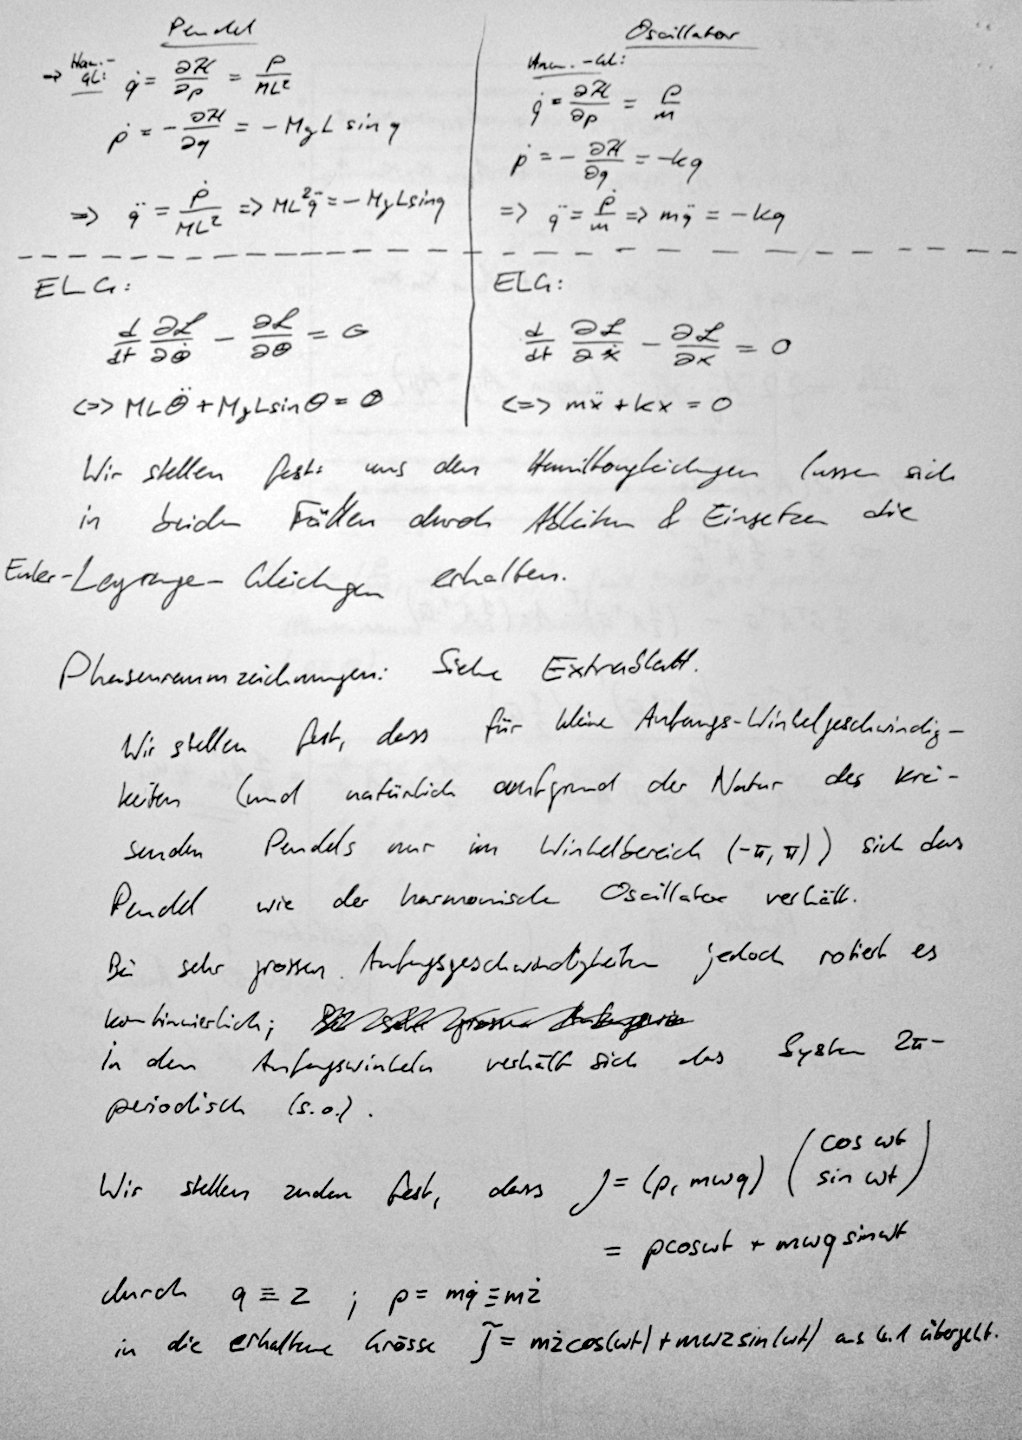 Pendel
→ Ham.-Gl: q̇ = ∂ℋ/∂p = p/ML²
ṗ = -∂ℋ/∂q = -MgL sin q
=> q̈ = ṗ/ML² => ML²q̈ = -MgL sin q
Oscillator
Ham.-Gl:
q̇ = ∂ℋ/∂p = p/m
ṗ = -∂ℋ/∂q = -kq
=> q̈ = ṗ/m => mq̈ = -kq
ELG:
d/dt ∂ℒ/∂θ̇ - ∂ℒ/∂θ = 0
<=> MLθ̈ + MgL sin θ = 0
ELG:
d/dt ∂ℒ/∂ẋ - ∂ℒ/∂x = 0
<=> mẍ + kx = 0
Wir stellen fest: aus den Hamiltongleichungen lassen sich
in beiden Fällen durch Ableiten & Einsetzen die
Euler-Lagrange-Gleichungen erhalten.
Phasenraumzeichnungen: Siehe Extrablatt.
Wir stellen fest, dass für kleine Anfangs-Winkelgeschwindig-
keiten (und natürlich aufgrund der Natur des krei-
senden Pendels nur im Winkelbereich (-π, π)) sich das
Pendel wie der harmonische Oscillator verhält.
Bei sehr grossen Anfangsgeschwindigkeiten jedoch rotiert es
kontinuierlich;
in den Anfangswinkeln verhält sich das System 2π-
periodisch (s.o.).
Wir stellen zudem fest, dass J = (p, mωq) (cos ωt
sin ωt)
= p cos ωt + mωq sin ωt
durch q ≡ z ; p = mq̇ ≡ mż
in die erhaltene Grösse J̃ = mż cos(ωt) + mωz sin(ωt) aus 4.1 übergeht.